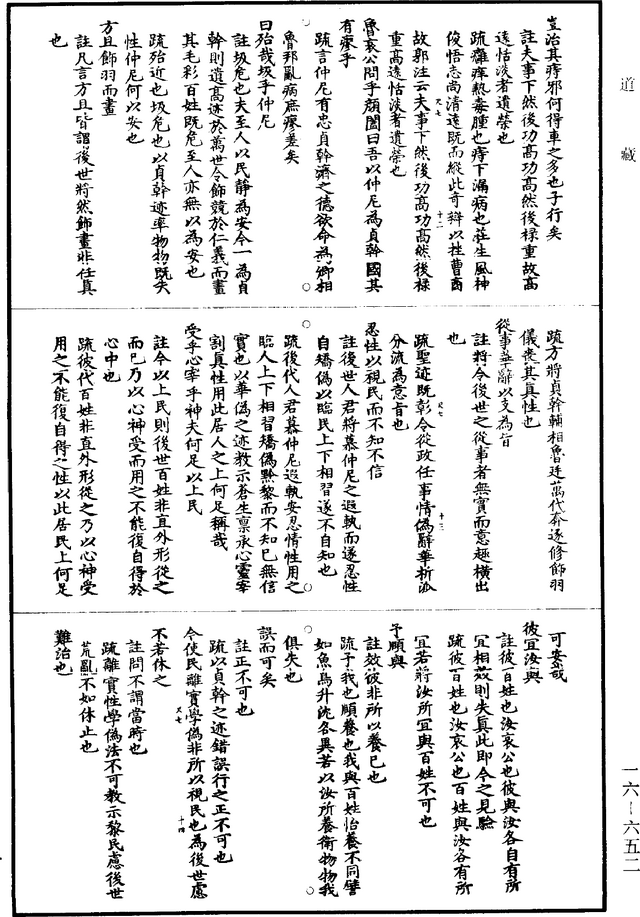 道藏
豈治其痔邪何得車之多也子行矣
註夫事下然後功高功高然後祿重故高
遠恬淡者遺榮也
疏癰痤熱毒腫也痔下漏病也莊生風神
俊悟志尚清遠既而縱此奇辯以挫曹商
尺七 十二
故郭注云夫事下然後功高功高然後祿
重高遠恬淡者遺榮也
魯哀公問乎顏闔曰吾以仲尼為貞幹國其
有瘳乎
疏言仲尼有忠貞幹濟之德欲命為卿相
魯邦亂病庶瘳差矣
曰殆哉圾乎仲尼
註圾危也夫至人以民靜為安今一為貞
幹則遺高迹於萬世令飾競於仁義而畫
其毛彩百姓既危至人亦無以為安也
疏殆近也圾危也以貞幹迹率物物既失
性仲尼何以安也
方且飾羽而畫
註凡言方且皆謂後世將然飾畫非任真
也
疏方將貞幹輔相魯廷萬代奔逐修飾羽
儀喪其真性也
從事華辭以支為旨
註將令後世之從事者無實而意趣橫出
也
尺七 十三
疏聖迹既彰令從政任事情偽辭華析派
分流為意旨也
忍性以視民而不知不信
註後世人君將慕仲尼之遐軌而遂忍性
自矯偽以臨民上下相習遂不自知也
疏後代人君慕仲尼遐軌安忍情性用之
臨人上下相習矯偽黔黎而不知已無信
實也以華偽之迹教示蒼生稟承心靈宰
割真性用此居人之上何足稱哉
受乎心宰乎神夫何足以上民
註今以上民則後世百姓非直外形從之
而已乃以心神受而用之不能復自得於
心中也
疏彼代百姓非直外形從之乃以心神受
用之不能復自得之性以此居民上何足
可安哉
彼宜汝與
註彼百姓也汝哀公也彼與汝各自有所
宜相效則失真此即今之見驗
疏彼百姓也汝哀公也百姓與汝各有所
宜若將汝所宜與百姓不可也
予頤與
註效彼非所以養已也
疏予我也頤養也我與百姓怡養不同譬
如魚鳥升沈各異若以汝所養衛物物我
俱失也
誤而可矣
註正不可也
疏以貞幹之迹錯誤行之正不可也
今使民離實學偽非所以視民也為後世慮
尺七 十四
不若休之
註明不謂當時也
疏離實性學偽法不可教示黎民慮後世
荒亂不如休止也
難治也
一六-六五二